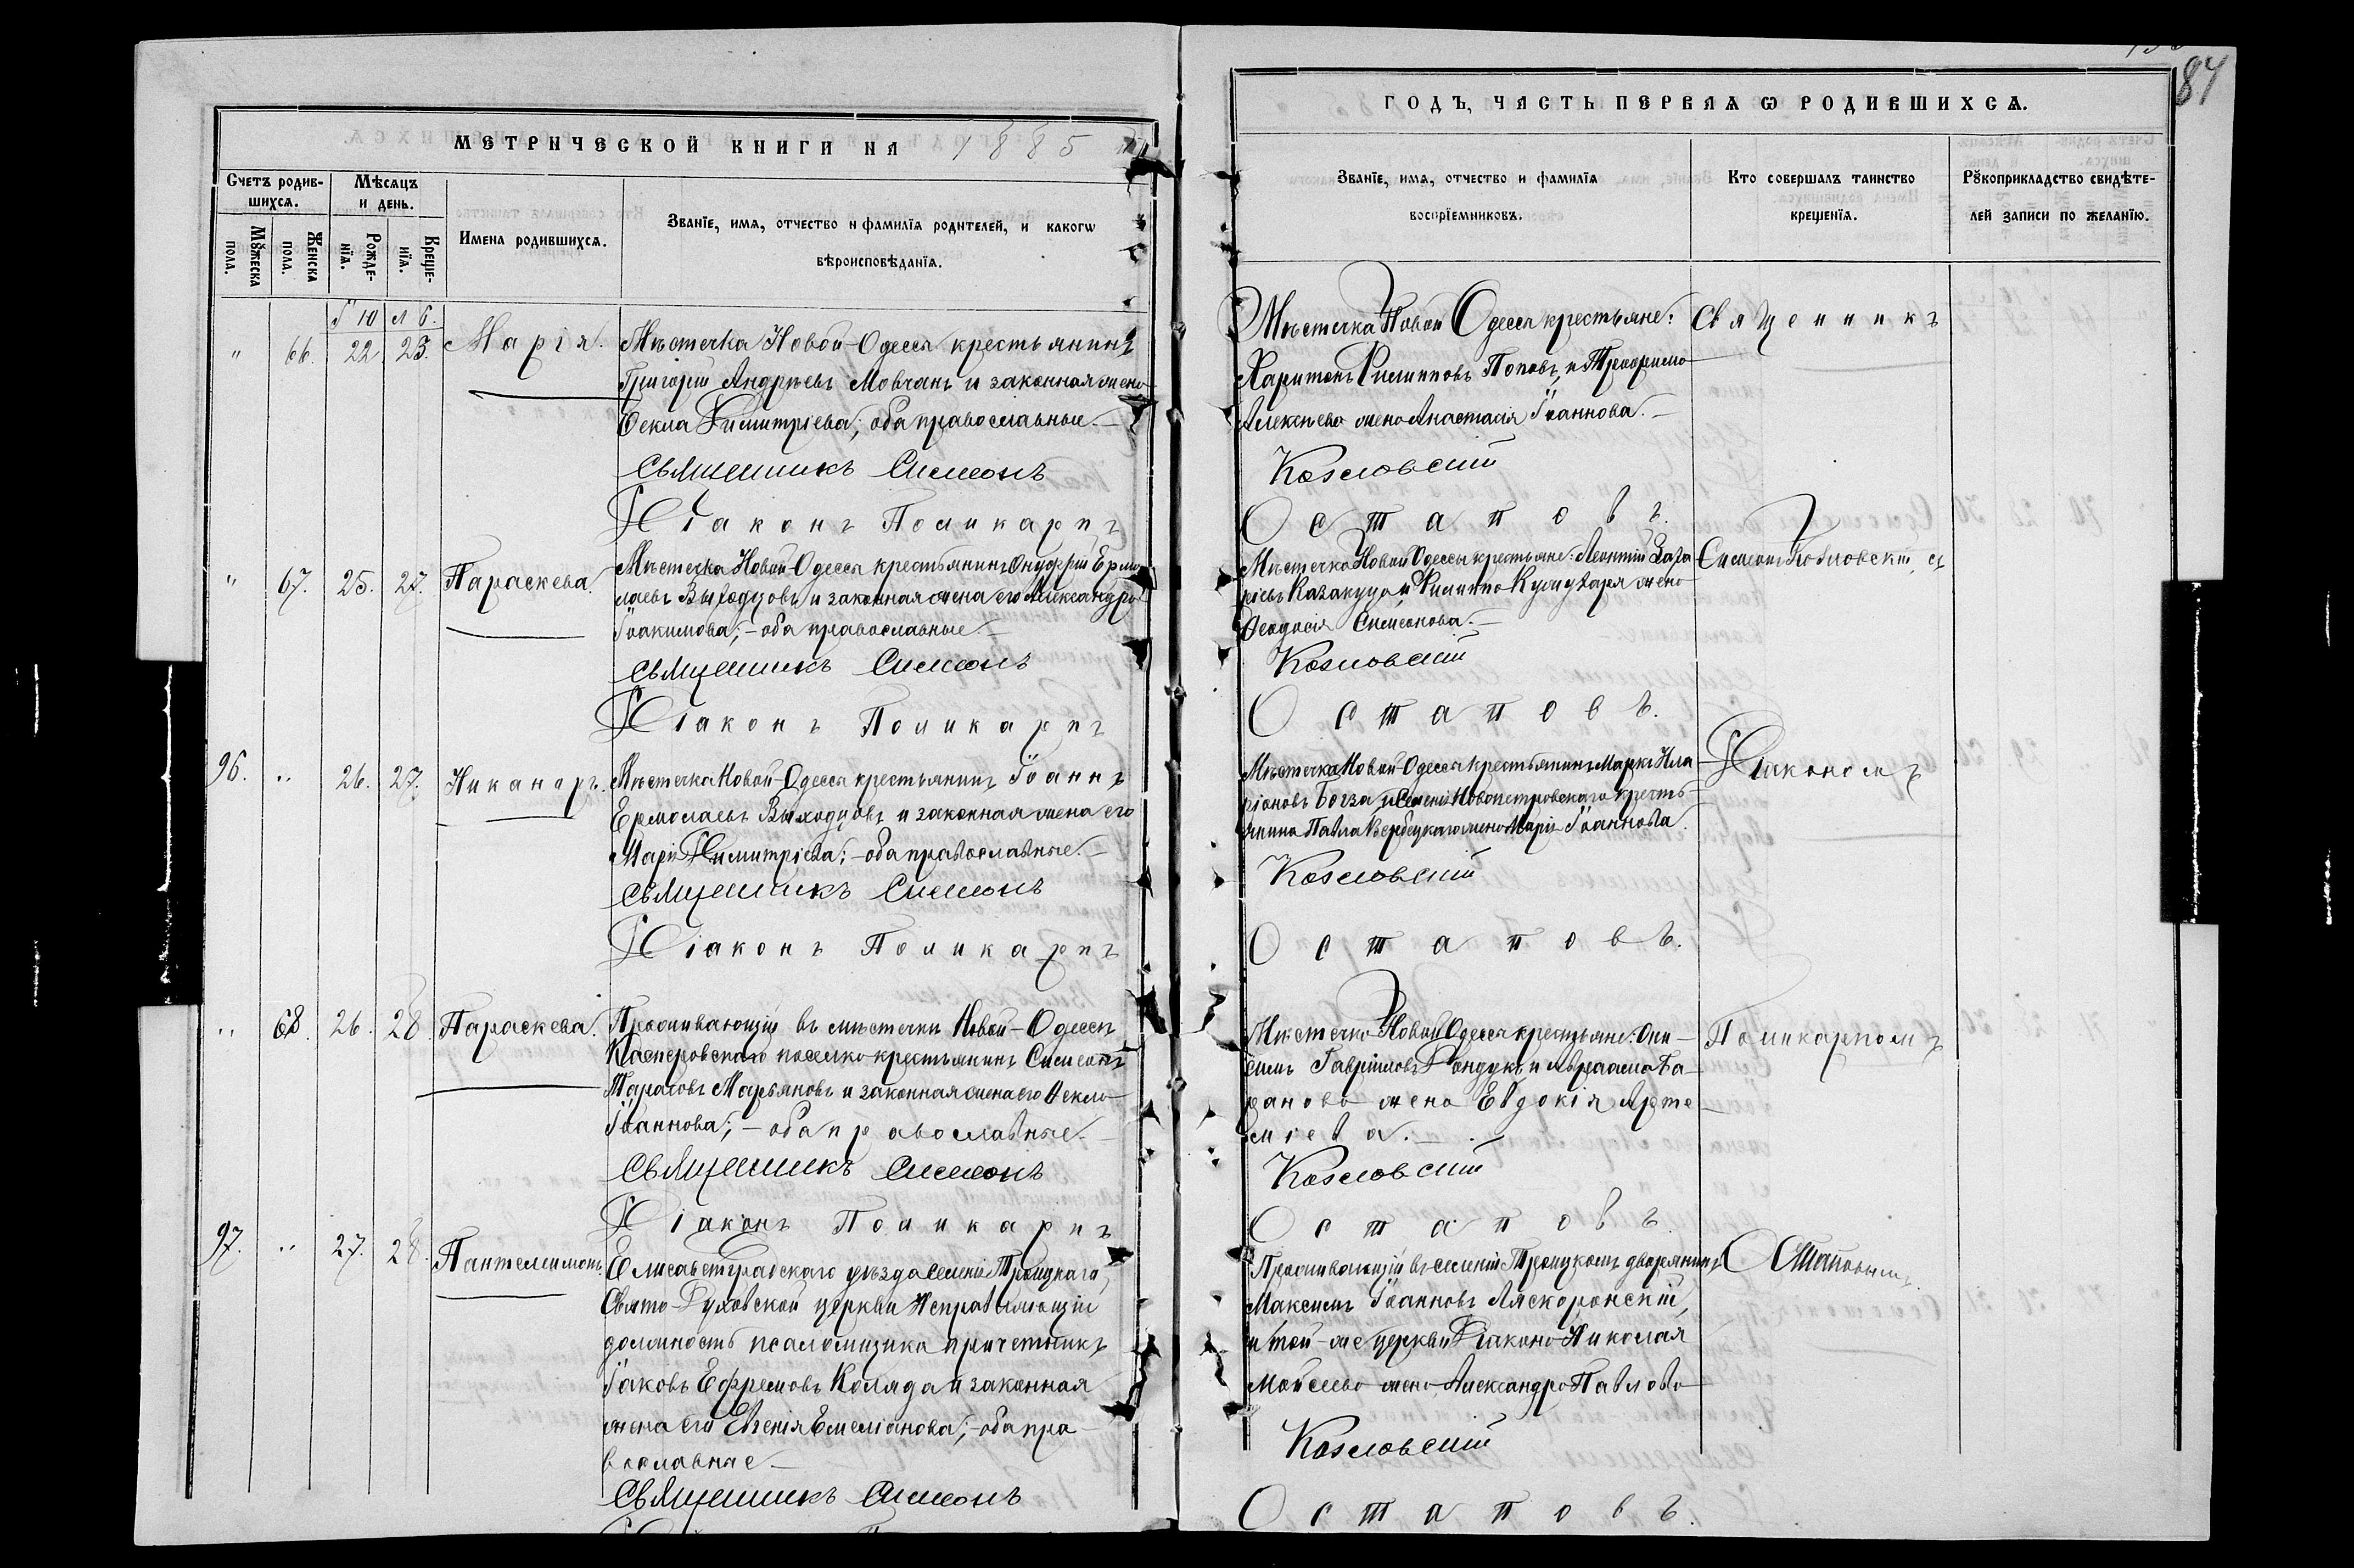 МЕТРИЧЕСКОЙ КНИГИ НА 1885
Счетъ родив-
шихся.
Мѣсяцъ
и день.
Мужеска
пола.
Женска
пола.
Рожде-
нїя.
Креще-
нїя.
Имена родившихся.
Званїе, имя, отчество и фамилїя родителей, и какогѡ
вѣроисповѣданїя.
" 66. 22 23. Марія. Мѣстечка Новой-Одессы крестьянинъ
Григорій Андреевъ Мовчанъ и законная жена
Ѳекла Димитріева; оба православные.
Священникъ Симеонъ
Діаконъ Поликарпъ
" 67. 25. 27. Параскева. Мѣстечка Новой-Одессы крестьянинъ Онуфрій Ермо
лаевъ Выходцовъ и законная жена его Александра
Іоакимова; - оба православные. -
Священникъ Симеонъ
Діаконъ Поликарпъ
96. " 26. 27. Никаноръ. Мѣстечка Новой-Одессы крестьянинъ Іоаннъ
Ермолаевъ Выходцовъ и законная жена его
Марія Димитріева; - оба православные. -
Священникъ Симеонъ
Діаконъ Поликарпъ
" 68. 26. 28 Параскева. Проживающій въ мѣстечкѣ Новой-Одессѣ
Касперовского поселка крестьянинъ Симеонъ
Тарасовъ Марьяновъ и законная жена его Ѳекла
Іоаннова; - оба православные. -
Священникъ Симеонъ
Діаконъ Поликарпъ
97. " 27. 28. Пантелимонъ. Елисаветградскаго уѣзда селенія Троицкаго,
Свято-Духовской церкви Исправляющій
должность псаломщика причетникъ
Іаковъ Ефремовъ Коляда и законная
жена его Евгенія Емеліанова; - оба пра-
вославные -
Священникъ Симеонъ
84
ГОДЪ, ЧАСТЬ ПЕРВАЯ Ѡ РОДИВШИХСЯ.
Званїе, имя, отчество и фамилїя
воспрїемниковъ.
Кто совершалъ таинство
крещенїя.
Рꙋкоприкладство свидѣте-
лей записи по желанїю.
Мѣстечка Новой Одессы крестьяне: Священникъ
Харитонъ Филипповъ Поповъ, и Трофима
Алексѣева жена Анастасія Іоаннова. -
Козловскій
Остаповъ.
Мѣстечка Новой Одессы крестьяне: Леонтій Заха Симеонъ Козловскій, съ
ріевъ Казакуца и Филиппа жена
Ѳеодосія Симеонова. -
Козловскій
Остаповъ.
Мѣстечка Новой-Одессы крестьянинъ Маркъ Ила Діакономъ
ріоновъ Богза, и Селенія Новопетровскаго кресть-
янина Павла Вербецкаго жена Марія Іоаннова.
Козловскій
Остаповъ.
Мѣстечка Новой Одессы крестьяне: Они- Поликарпомъ
симъ Гавріиловъ Рондукъ и Авраама Ба-
ранова жена Евдокія Арте-
міева. -
Козловскій
Остаповъ.
Проживающій въ селеніи Троицкомъ дворянинъ Остаповымъ.
Максимъ Іоанновъ Ляскоронскій,
и той-же церкви Діакона Николая
Мойсеева жена Александра Павлова
Козловскій
Остаповъ.